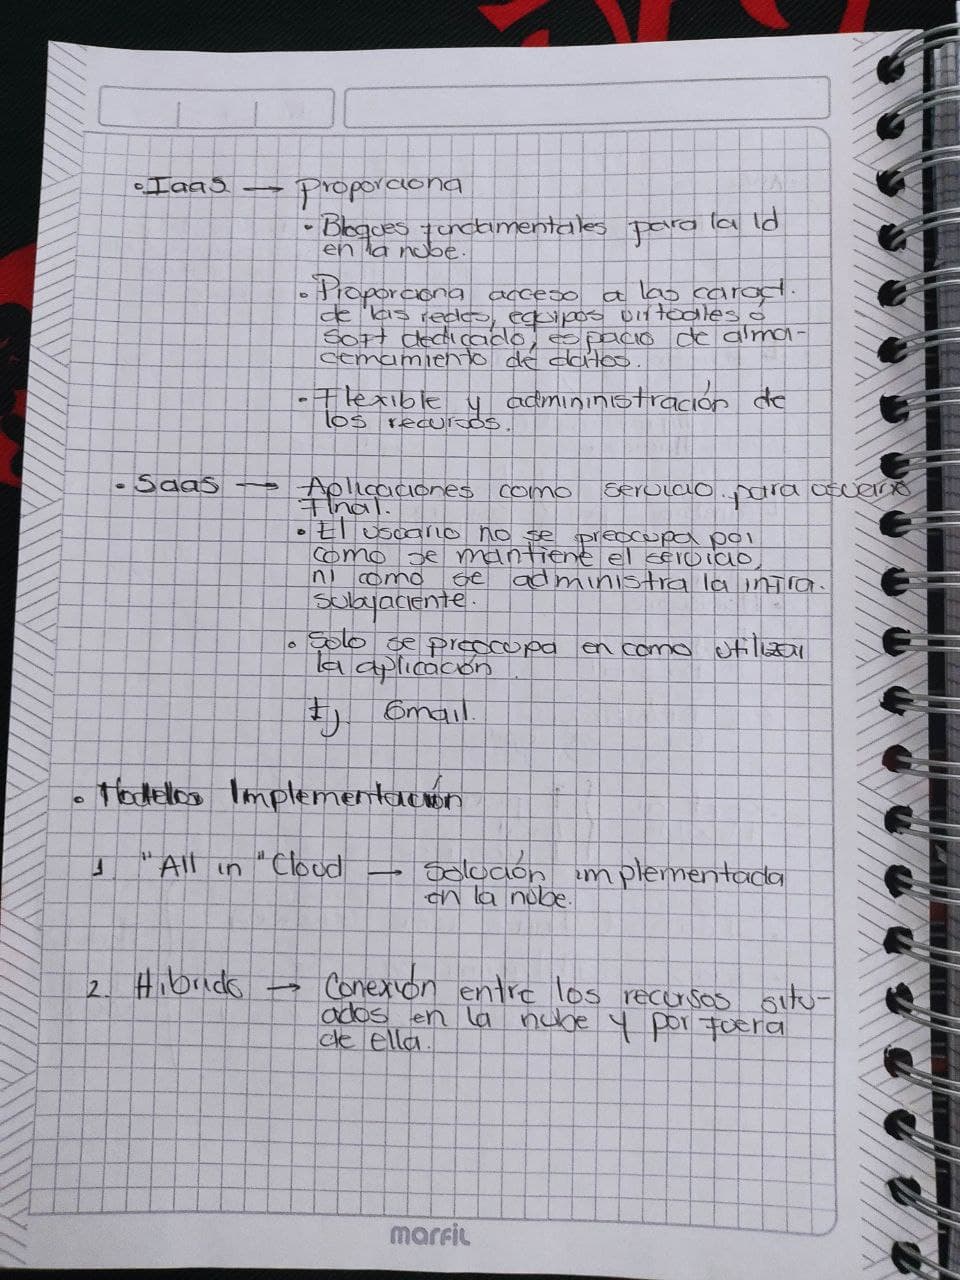 • Iaas → Proporciona
• Bloques fundamentales para la Id
en la nube.
• Proporciona acceso a las caract.
de las redes, equipos virtuales o
soft dedicado, espacio de alma-
cemamiento de datos.
• Flexible y admininistración de
los recursos.
• Saas → Aplicaciones como servicio para usuario
final.
• El usuario no se preocupa por
como se mantiene el servicio,
ni como se administra la infra.
subyaciente.
• Solo se preocupa en como utilizar
la aplicación.
Ej. Gmail.
• Modelos Implementación
1 "All in" Cloud → Solución implementada
en la nube.
2. Hibrido → Conexión entre los recursos situ-
ados en la nube y por fuera
de ella.
marfil